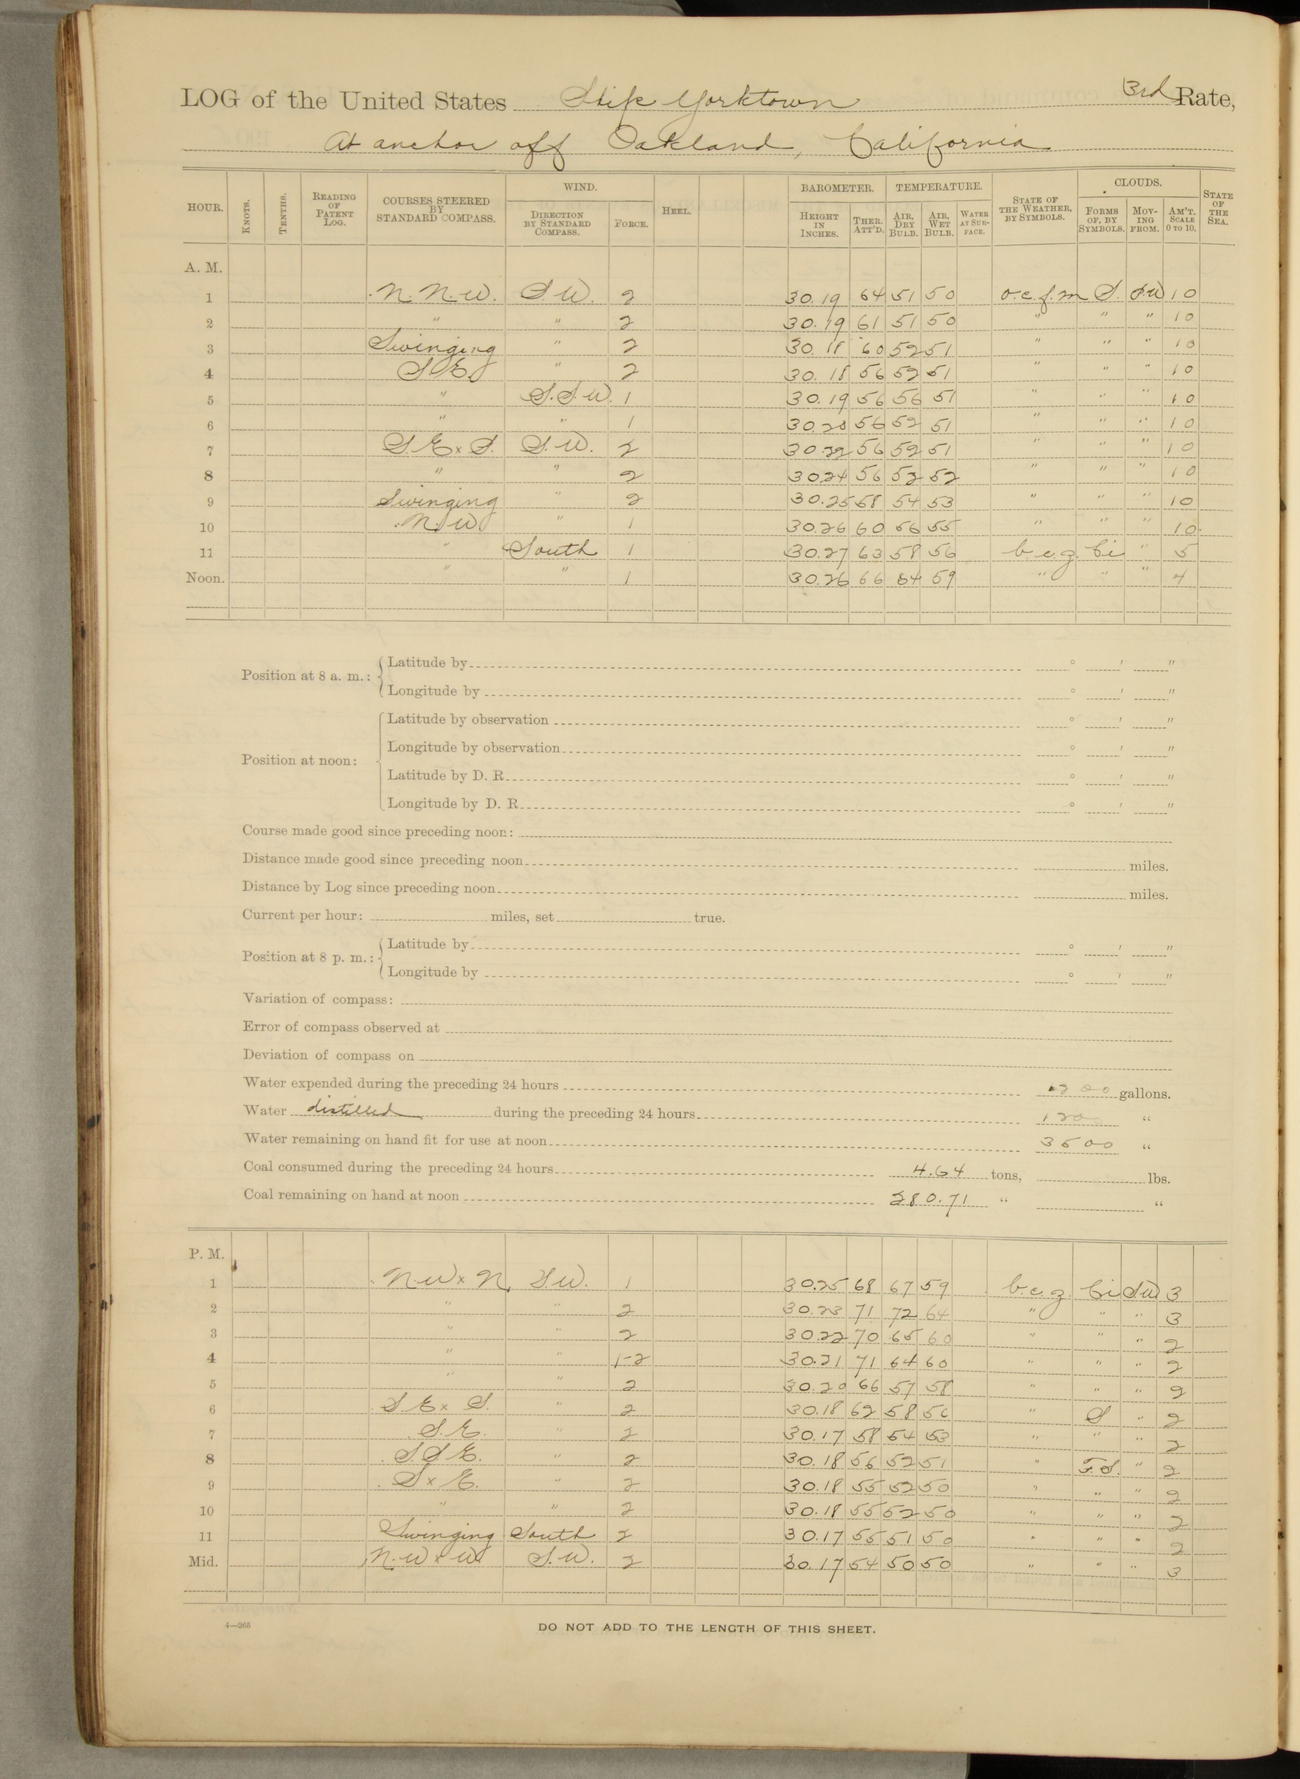 LOG of the United States Ship Yorktown 3rd Rate,
At anchor off Oakland, California
HOUR. KNOTS. TENTHS. READING OF PATENT LOG. COURSES STEERED BY STANDARD COMPASS. WIND. DIRECTION BY STANDARD COMPASS. FORCE. HEEL. BAROMETER. HEIGHT IN INCHES. THER. ATT'D. TEMPERATURE. AIR, DRY BULB. AIR, WET BULB. WATER AT SURFACE. STATE OF THE WEATHER, BY SYMBOLS. CLOUDS. FORMS OF, BY SYMBOLS. MOVING FROM. AM'T. SCALE 0 TO 10. STATE OF THE SEA.
A. M.
1 N. N. W. S W. 2 30.19 64 51 50 o.c.f.m S. SW 10
2 " " 2 30.19 61 51 50 " " " 10
3 Swinging " 2 30.18 60 52 51 " " " 10
4 S E. " 2 30.18 56 52 51 " " " 10
5 " S. S. W. 1 30.19 56 56 51 " " " 10
6 " " 1 30.20 56 52 51 " " " 10
7 S. E x S. S. W. 2 30.22 56 52 51 " " " 10
8 " " 2 30.24 56 52 52 " " " 10
9 Swinging " 2 30.25 58 54 53 " " " 10
10 N. W. " 1 30.26 60 56 55 " " " 10
11 " South 1 30.27 63 58 56 b.c.z. Ci " 5
Noon. " " 1 30.26 66 64 59 " " " 4
Position at 8 a. m.: Latitude by ° ' "
Longitude by ° ' "
Position at noon: Latitude by observation ° ' "
Longitude by observation ° ' "
Latitude by D. R. ° ' "
Longitude by D. R. ° ' "
Course made good since preceding noon:
Distance made good since preceding noon miles.
Distance by Log since preceding noon miles.
Current per hour: miles, set true.
Position at 8 p. m.: Latitude by ° ' "
Longitude by ° ' "
Variation of compass:
Error of compass observed at
Deviation of compass on
Water expended during the preceding 24 hours gallons.
Water distilled during the preceding 24 hours 120 "
Water remaining on hand fit for use at noon 3500 "
Coal consumed during the preceding 24 hours 4.64 tons, lbs.
Coal remaining on hand at noon 280.71 " "
P. M.
1 N. W x N. S W. 1 30.25 68 67 59 b.c.z. Ci SW 3
2 " " 2 30.23 71 72 64 " " " 3
3 " " 2 30.22 70 65 60 " " " 2
4 " " 1-2 30.21 71 64 60 " " " 2
5 " " 2 30.20 66 57 58 " " " 2
6 S E x S. " 2 30.18 62 58 56 " S " 2
7 S. E. " 2 30.17 58 54 53 " " " 2
8 S. S E. " 2 30.18 56 52 51 " F. S. " 2
9 S x E. " 2 30.18 55 52 50 " " " 2
10 " " 2 30.18 55 52 50 " " " 2
11 Swinging South 2 30.17 55 51 50 " " " 2
Mid. N. W x W S. W. 2 30.17 54 50 50 " " " 3
4—265
DO NOT ADD TO THE LENGTH OF THIS SHEET.